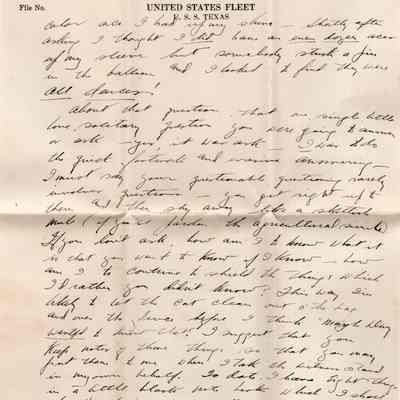 File No.
UNITED STATES FLEET
U. S. S. TEXAS
color ace I had up my sleeve — Shortly after
asking I thought I did have an even dozen aces
up my sleeve but somebody stuck a pin
in the balloon and I looked to find they were
all deuces!
About that question — that one simple little
lone, solitary question you were going to answer
or ask — yes, it was ask — I was to do
the quiet, and evasive answering —
I must say your questionable questioning rarely
involves questions — you get right up to
them and then shy away like a skittish
mule (if you'll pardon the agricultural simile)
If you don't ask, how am I to know what it
is that you want to know if I know — how
am I to continue to shield the things which
I'd rather you didn't know? This way I'm
likely to let the cat clean out o' the bag
and over the fence before I think "Maybe Mary
wanted to know that". I suggest that you
keep notes of those things so that you may
put them to me when I take the witness stand
in my own behalf. To date I have eight things
in a little black note book which I shall